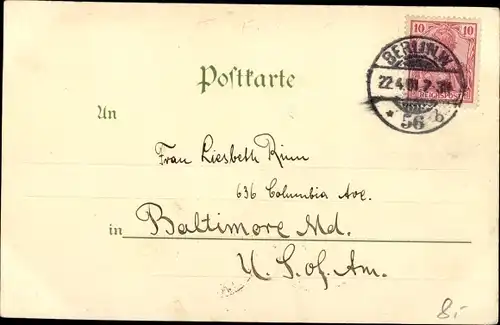 10 10
BERLIN.W.
22.4.01.7-8N.
REICHSPOST
* 56 b
Postkarte
An
Frau Liesbeth Rinn
636 Columbia Ave.
in Baltimore Md.
U. S. of. Am.
8.-